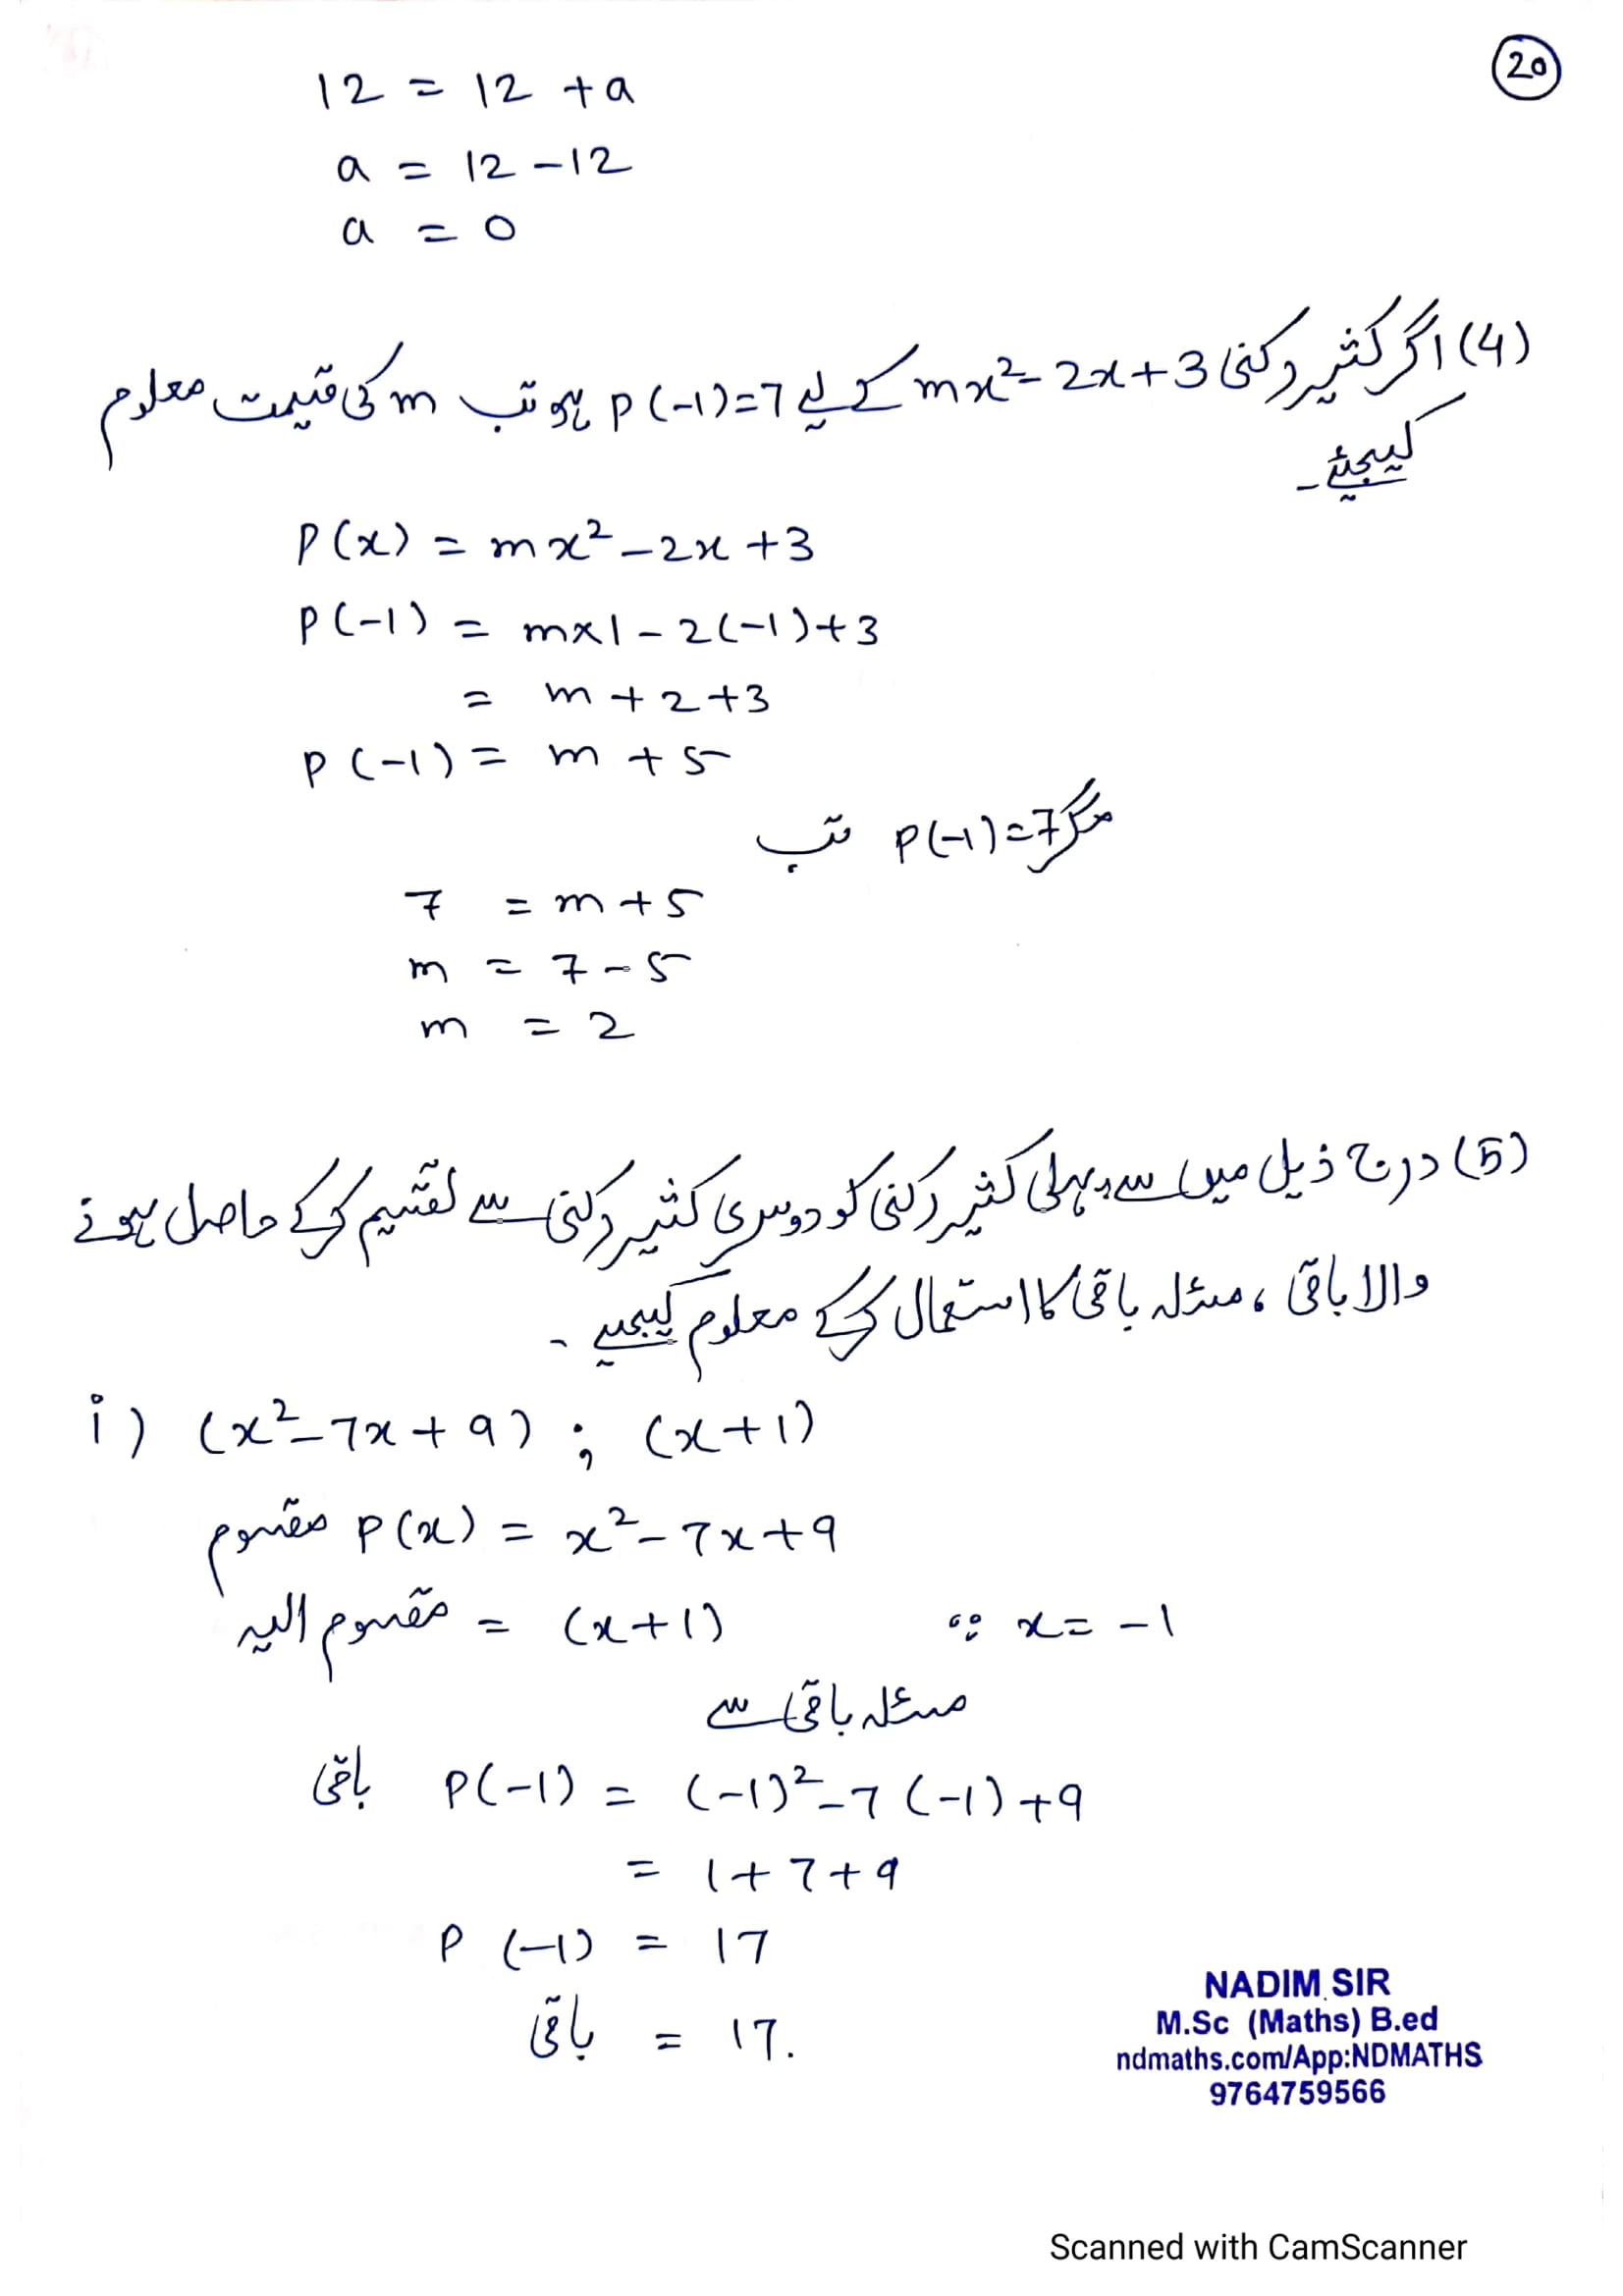 20
12 = 12 + a
a = 12 - 12
a = 0
(4) اگر کثیر رکنی mx² - 2x + 3 کے لیے p(-1)=7 ہو تب m کی قیمت معلوم
کیجیئے۔
P(x) = mx² - 2x + 3
P(-1) = m×1 - 2(-1) + 3
= m + 2 + 3
P(-1) = m + 5
مگر P(-1) = 7 تب
7 = m + 5
m = 7 - 5
m = 2
(5) درج ذیل میں سے پہلی کثیر رکنی کو دوسری کثیر رکنی سے تقسیم کرکے حاصل ہونے
والا باقی ، مسئلہ باقی کا استعمال کرکے معلوم کیجیے ۔
i) (x² - 7x + 9) ; (x + 1)
مقسوم P(x) = x² - 7x + 9
مقسوم الیہ = (x + 1) ∵ x = -1
مسئلہ باقی سے
باقی P(-1) = (-1)² - 7(-1) + 9
= 1 + 7 + 9
P(-1) = 17
باقی = 17.
NADIM SIR
M.Sc (Maths) B.ed
ndmaths.com/App:NDMATHS
9764759566
Scanned with CamScanner